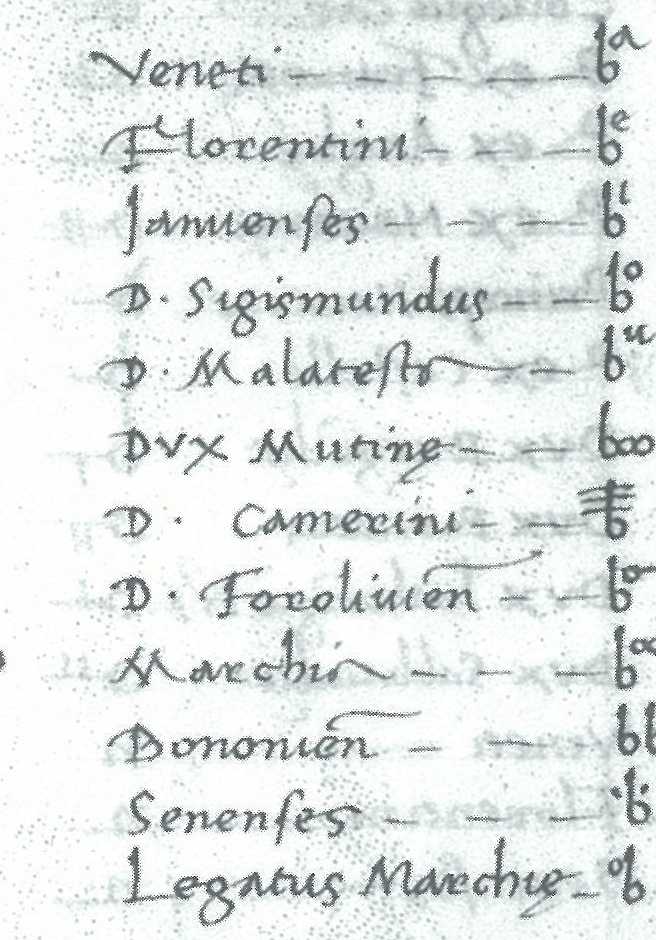 Veneti — — — — — bᵃ
Florentini — — — bᵉ
Januenses — — — bⁱ
D. Sigismundus — — bᵒ
D. Malatest — — bᵘ
DVX Mutinę — — boo
D. Camerini — — b
D. Foroliuien̄ — — bᵒ
Marchio — — — b
Bononien̄ — — — bb
Senenses — — — ·b·
Legatus Marchię — ᵒb